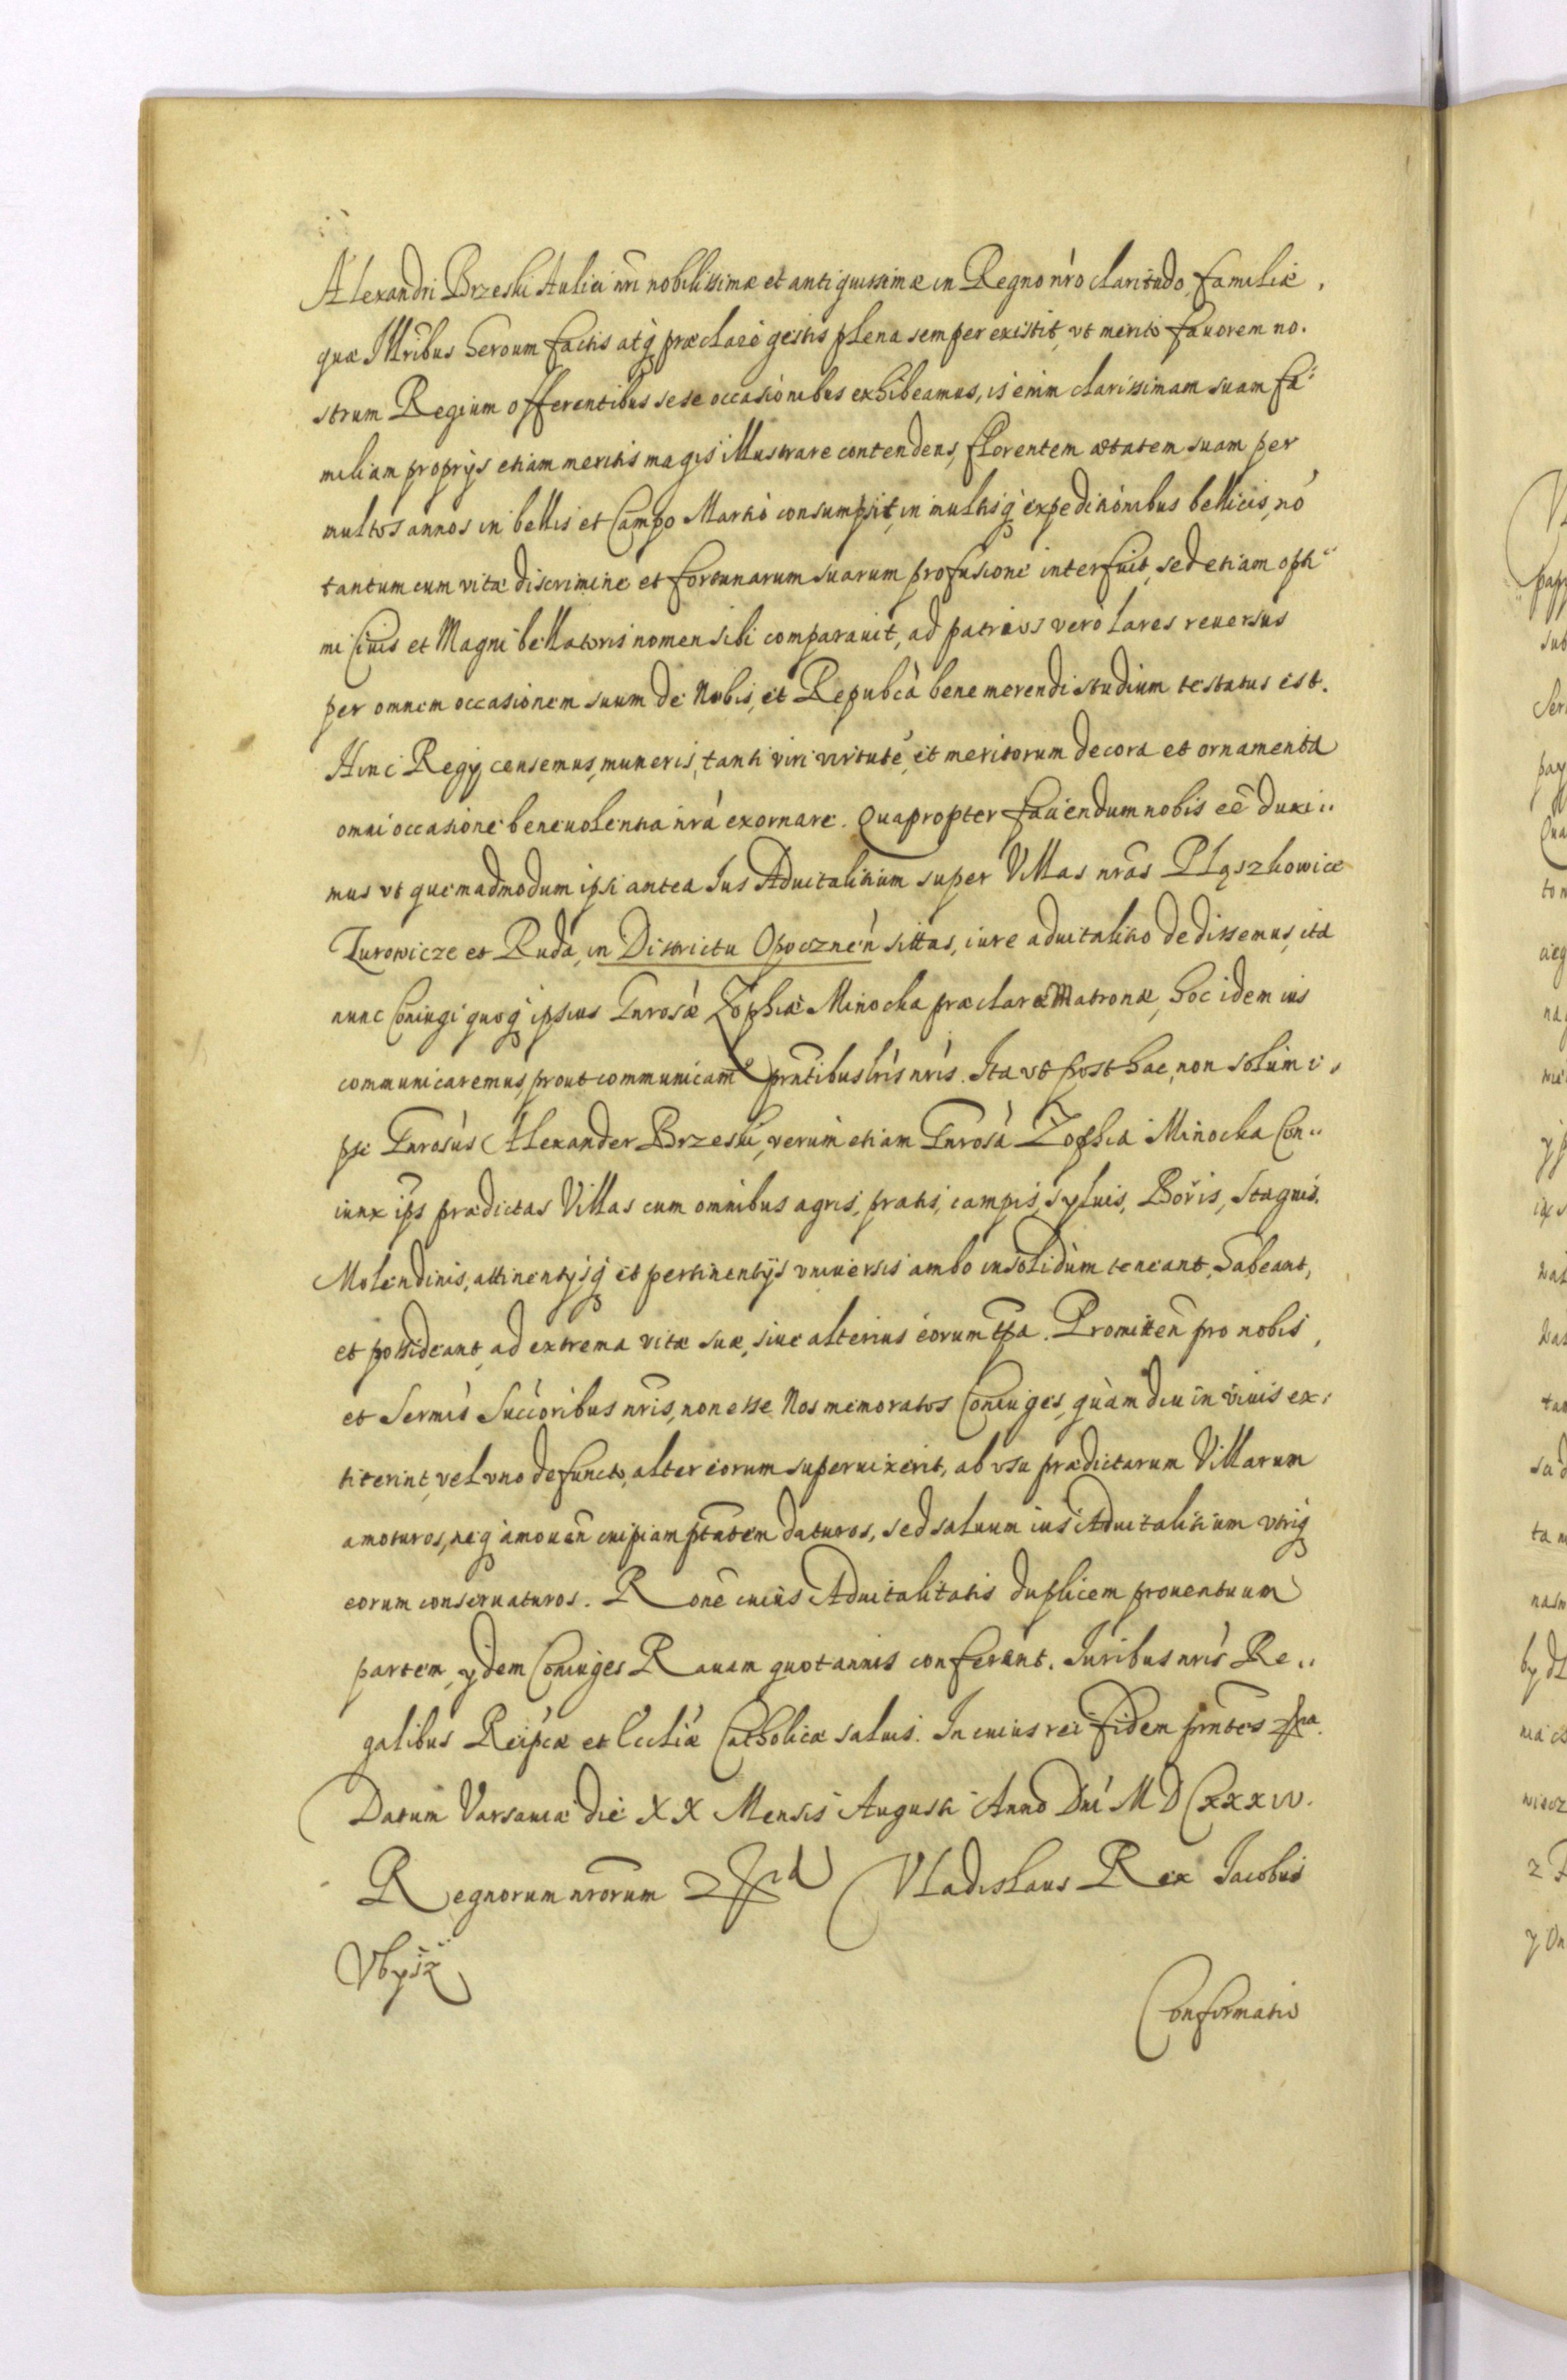 Alexandri Brzeski Aulici nri nobilissimæ et antiquissimæ in Regno nro claritudo familiæ,
quæ Illribus heroum factis atq præclare gestis plena semper existit, vt merito fauorem no.
strum Regium offerentibus sese occasionibus exhibeamus, is enim clarissimam suam fa..
miliam proprijs etiam meritis magis illustrare contendens, florentem ætatem suam per
multos annos in bellis et Campo Martio consumpsit, in multisq expeditionibus bellicis, nõ
tantum cum vitæ discrimine et fortunarum suarum profusione interfuit, sed etiam opti..
mi Ciuis et Magni bellatoris nomen sibi comparauit, ad patrios vero Lares reuersus
per omnem occasionem suum de Nobis, et Repubca bene merendi studium testatus est.
Hinc Regij censemus, muneris, tanti viri virtute, et meritorum decora et ornamenta
omni occasione beneuolentia nra exornare. Quapropter fauendum nobis eẽ duxi..
mus vt quemadmodum ipsi antea Ius Aduitalitium super Villas nras Pląszkowice
Zurowicze et Ruda, in Districtu Opocznen sittas, iure aduitalitio dedissemus, ita
nunc Coniugi quoq ipsius Gnrosæ Zophiæ Minocka præclaræ Matronæ, hoc idem ius
communicaremus, prout communicam9 prntibus lris nris. Ita vt post hac, non solum i.
pse Gnrosus Alexander Brzeski, verum etiam Gnrosa Zophia Minocka Con..
iunx ips prædictas Villas cum omnibus agris, pratis, campis, syluis, Boris, Stagnis,
Molendinis, attinentijsq et pertinentijs vniuersis ambo insolidum teneant, habeant,
et possideant, ad extrema vitæ suæ, siue alterius eorum tpa. Promitten pro nobis,
et Sermis Succoribus nris, non esse Nos memoratos Coniuges, quàm diu in viuis ex.
titerint, vel vno defuncto, alter eorum superuixerit, ab vsu prædictarum Villarum
amoturos, neq amouen cuipiam ptatem daturos, sed saluum ius Aduitalitium vtriq
eorum conseruaturos. Rone cuius Aduitalitatis duplicem prouentuum
partem, ydem Coniuges Rauam quotannis conferant. Iuribus nris Re..
galibus Reipcæ et Ecclię Catholicæ saluis. In cuius rei fidem prntes
Datum Varsauiæ die XX Mensis Augusti Anno Dni MDCXXXIV.
Regnorum nrorum Vladislaus Rex Iacobus
Confirmatio